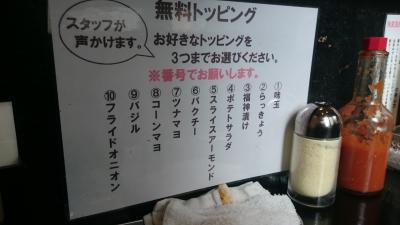 スタッフが
声かけます。
無料トッピング
お好きなトッピングを
3つまでお選びください。
※番号でお願いします。
①味玉
②らっきょう
③福神漬け
④ポテトサラダ
⑤スライスアーモンド
⑥パクチー
⑦ツナマヨ
⑧コーンマヨ
⑨バジル
⑩フライドオニオン